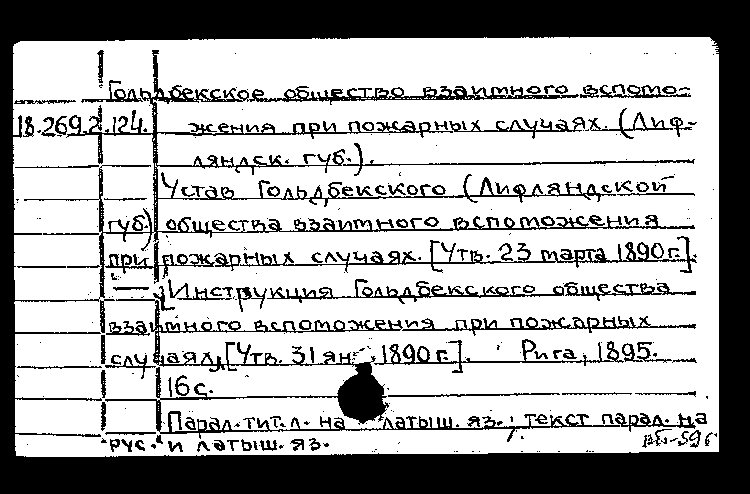 Гольдбекское общество взаимного вспомо-
18.269.2.124. жения при пожарных случаях. (Лиф-
ляндск. губ.).
Устав Гольдбекского (Лифляндской
губ) общества взаимного вспоможения
при пожарных случаях. [Утв. 23 марта 1890 г.].
— [Инструкция Гольдбекского общества
взаимного вспоможения при пожарных
случаях, [Утв. 31 янв. 1890 г.]. Рига, 1895.
16 с.
Парал. тит. л. на латыш. яз.; текст парал. на
рус. и латыш. яз.